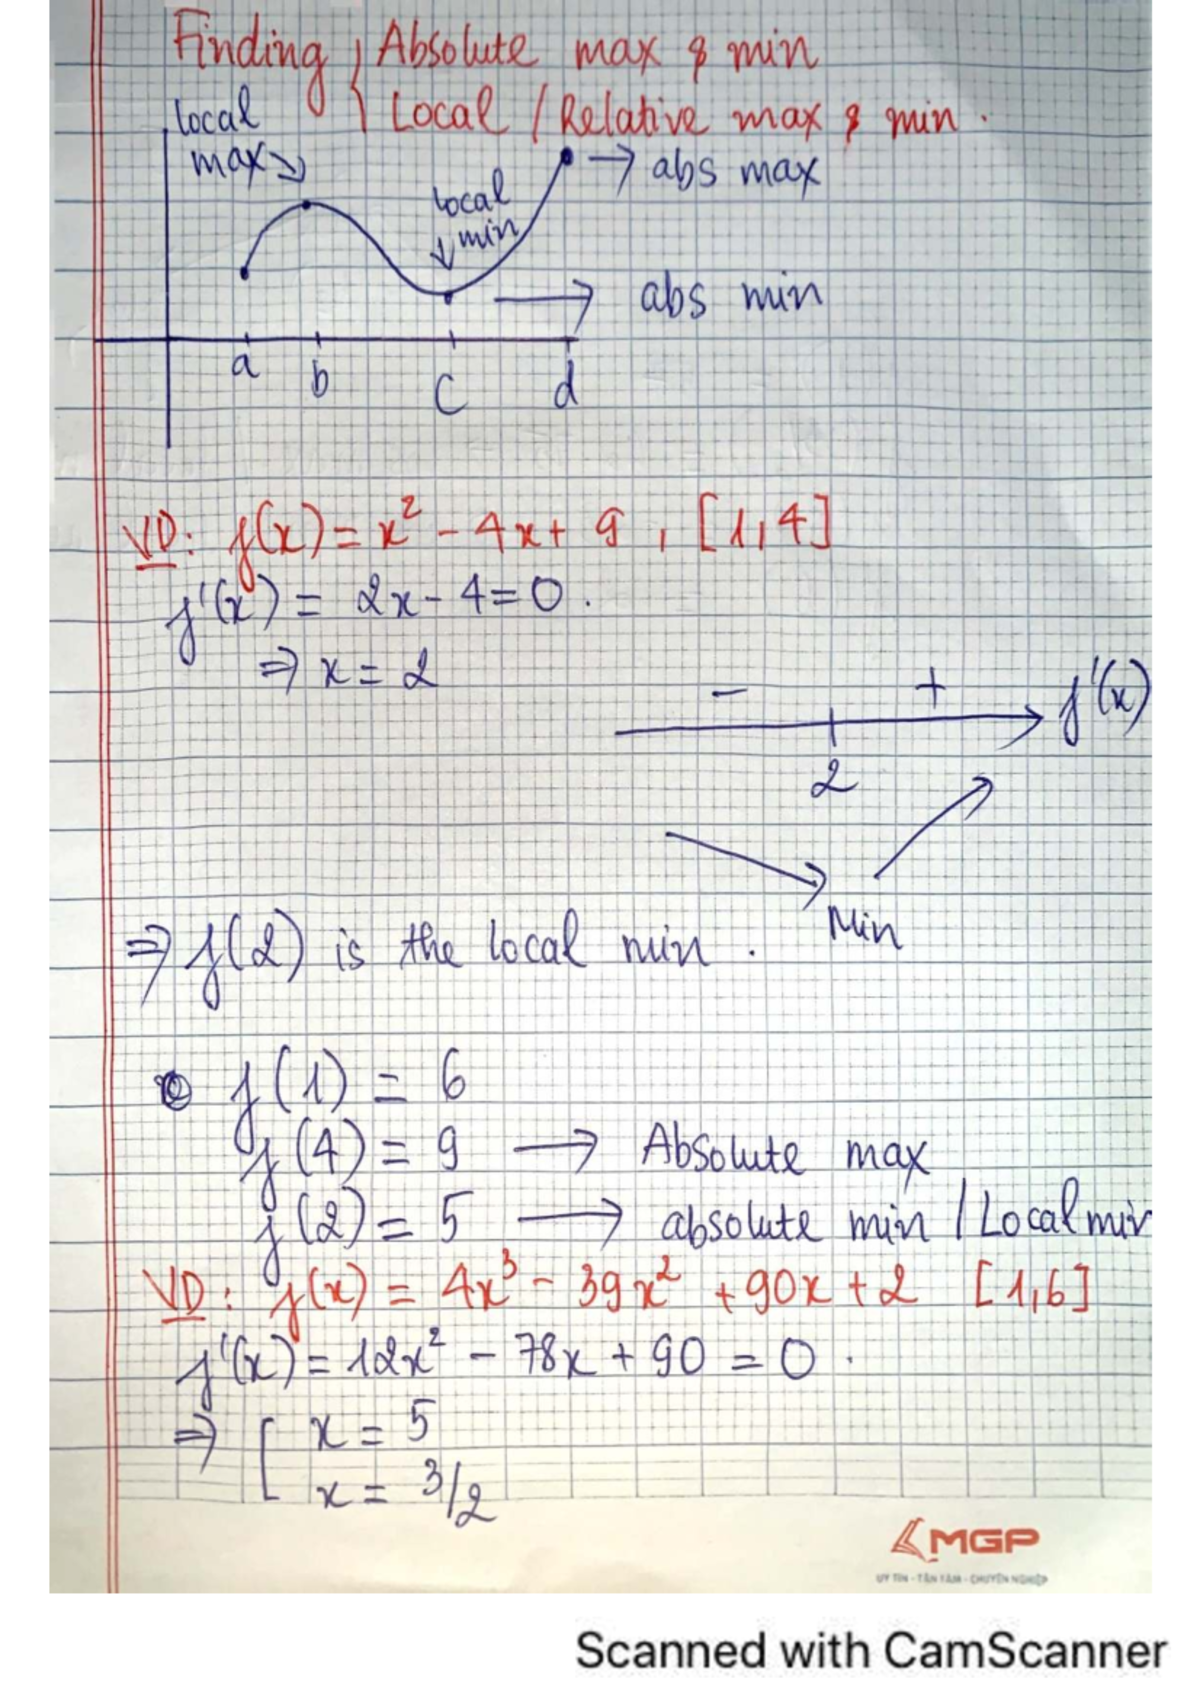 Finding { Absolute max & min
Local / Relative max & min.
local
max
local
min
abs max
abs min
a b c d
VD: f(x) = x² - 4x + 9, [1,4]
f'(x) = 2x - 4 = 0.
⇒ x = 2
- + f'(x)
2
Min
⇒ f(2) is the local min.
f(1) = 6
f(4) = 9 → Absolute max
f(2) = 5 → absolute min / Local min
VD: f(x) = 4x³ - 39x² + 90x + 2 [1,6]
f'(x) = 12x² - 78x + 90 = 0.
⇒ [ x = 5
x = 3/2
MGP
UY TÍN - TẬN TÂM - CHUYÊN NGHIỆP
Scanned with CamScanner